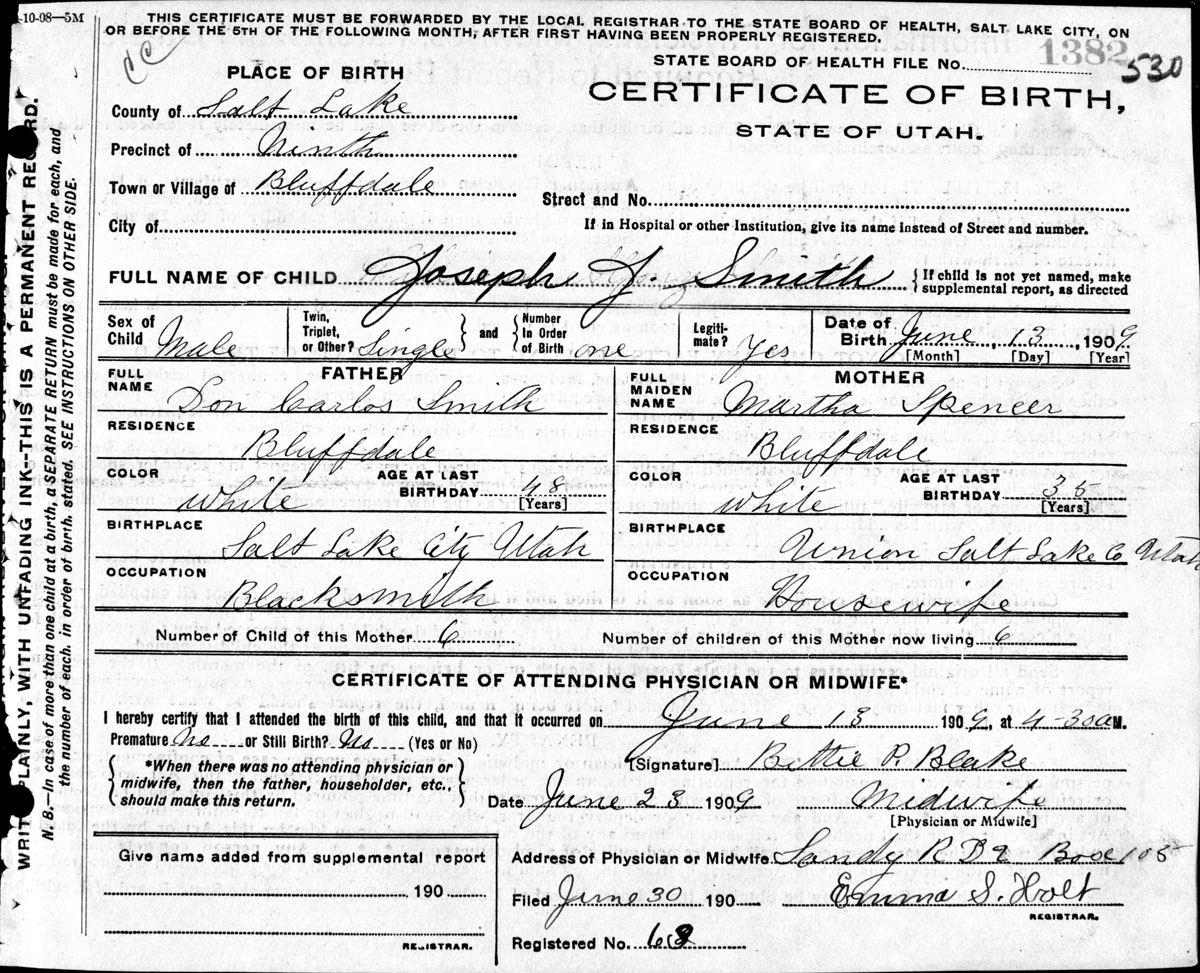 -10-08-5M
THIS CERTIFICATE MUST BE FORWARDED BY THE LOCAL REGISTRAR TO THE STATE BOARD OF HEALTH, SALT LAKE CITY, ON
OR BEFORE THE 5TH OF THE FOLLOWING MONTH, AFTER FIRST HAVING BEEN PROPERLY REGISTERED.
STATE BOARD OF HEALTH FILE No. 1382 530
PLACE OF BIRTH
CERTIFICATE OF BIRTH,
STATE OF UTAH.
County of Salt Lake
Precinct of Ninth
Town or Village of Bluffdale
Street and No.
City of
If in Hospital or other Institution, give its name instead of Street and number.
FULL NAME OF CHILD Joseph J. Smith {If child is not yet named, make
supplemental report, as directed
Sex of Child Male
Twin, Triplet, or Other? Single } and { Number In Order of Birth one
Legiti-mate? Yes
Date of Birth June, 13, 1909
[Month] [Day] [Year]
FATHER
FULL NAME Don Carlos Smith
RESIDENCE Bluffdale
COLOR White
AGE AT LAST BIRTHDAY 48 [Years]
BIRTHPLACE Salt Lake City Utah
OCCUPATION Blacksmith
MOTHER
FULL MAIDEN NAME Martha Spencer
RESIDENCE Bluffdale
COLOR White
AGE AT LAST BIRTHDAY 35 [Years]
BIRTHPLACE Union Salt Lake Co Utah
OCCUPATION Housewife
Number of Child of this Mother 6
Number of children of this Mother now living 6
CERTIFICATE OF ATTENDING PHYSICIAN OR MIDWIFE*
I hereby certify that I attended the birth of this child, and that it occurred on June 13 1909, at 4-30 a M.
Premature No or Still Birth? No (Yes or No)
{ *When there was no attending physician or
midwife, then the father, householder, etc.,
should make this return. }
{[Signature] Bettie P. Blake
Date June 23 1909 Midwife
[Physician or Midwife]
Give name added from supplemental report
190
REGISTRAR.
Address of Physician or Midwife Sandy R D 2 Box 105
Filed June 30 190 Emma S. Holt
REGISTRAR.
Registered No. 68
WRITE PLAINLY, WITH UNFADING INK--THIS IS A PERMANENT RECORD.
N. B.--In case of more than one child at a birth, a SEPARATE RETURN must be made for each, and
the number of each, in order of birth, stated. SEE INSTRUCTIONS ON OTHER SIDE.